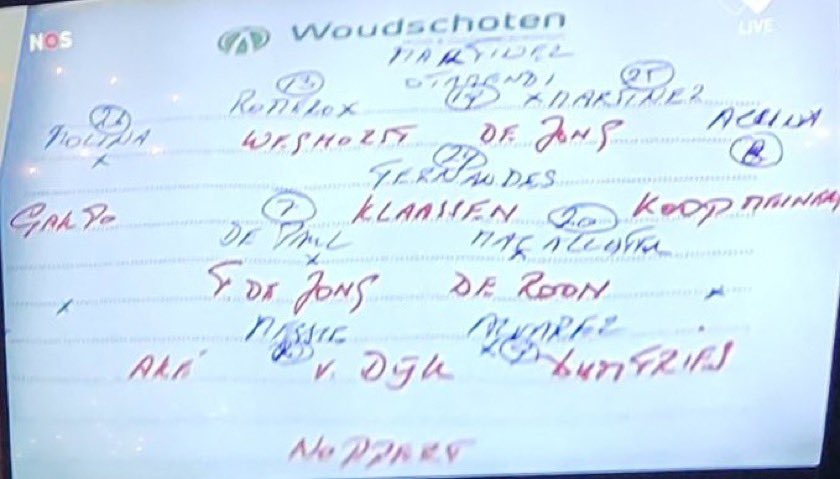 NOS Woudschoten LIVE
MARTINEZ
13 OTAMENDI 25
ROMERO X 19 X MARTINEZ
26 ACUNA
MOLINA WEGHORST DE JONG 8
X 24
FERNANDES
GAKPO 7 KLAASSEN 20 KOOPMEINERS
DE PAUL MAC ALLISTER
X F DE JONG DE ROON X
MESSIE ALVAREZ
AKÉ V. DIJK DUMFRIES
NOPPERT